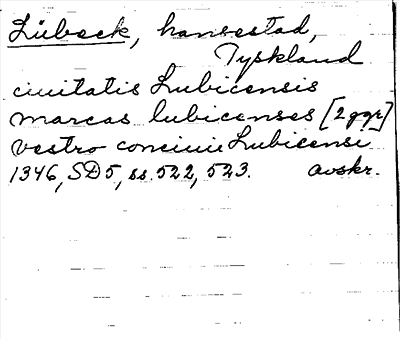 Lübeck, hansestad,
Tyskland
ciuitatis Lubicensis
marcas lubicenses [2 ggr]
vestro conciuie Lubicensi
1346, SD5, ss. 522, 523. avskr.